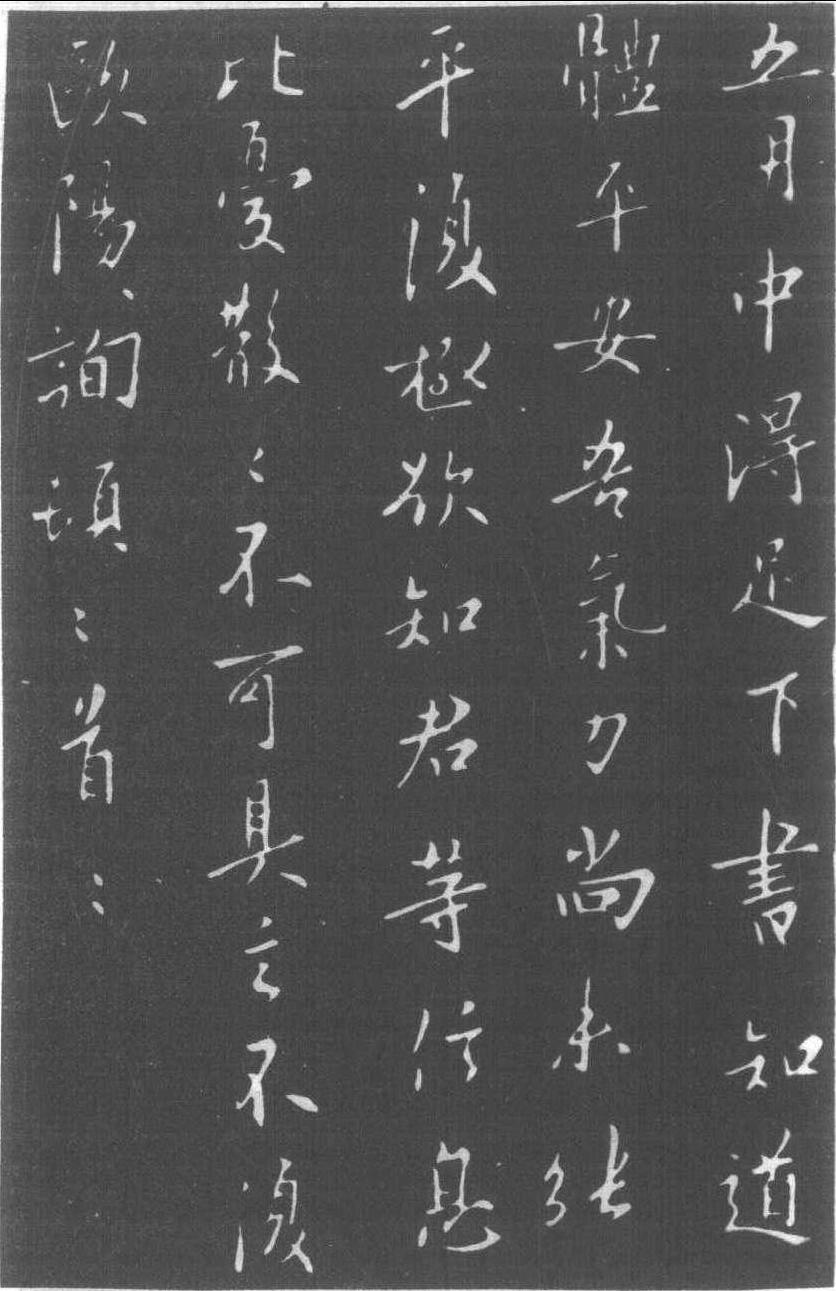 五月中得足下書知道
體平安吾氣力尚未能
平復極欲知君等信息
比憂散〻不可具言不復
歐陽詢頓〻首〻